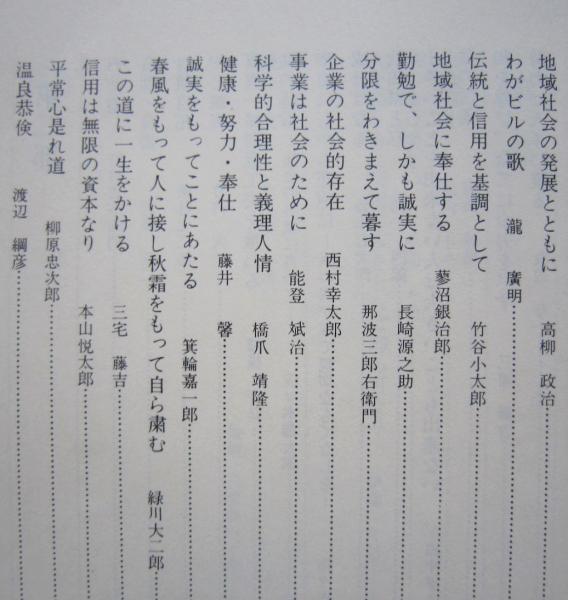 地域社会の発展とともに 高柳 政治
わがビルの歌 瀧 廣明
伝統と信用を基調として 竹谷小太郎
地域社会に奉仕する 蓼沼銀治郎
勤勉で、しかも誠実に 長崎源之助
分限をわきまえて暮す 那波三郎右衛門
企業の社会的存在 西村幸太郎
事業は社会のために 能登 斌治
科学的合理性と義理人情 橋爪 靖隆
健康・努力・奉仕 藤井 馨
誠実をもってことにあたる 箕輪嘉一郎
春風をもって人に接し秋霜をもって自ら粛む 緑川大二郎
この道に一生をかける 三宅 藤吉
信用は無限の資本なり 本山悦太郎
平常心是れ道 柳原忠次郎
温良恭倹 渡辺 綱彦